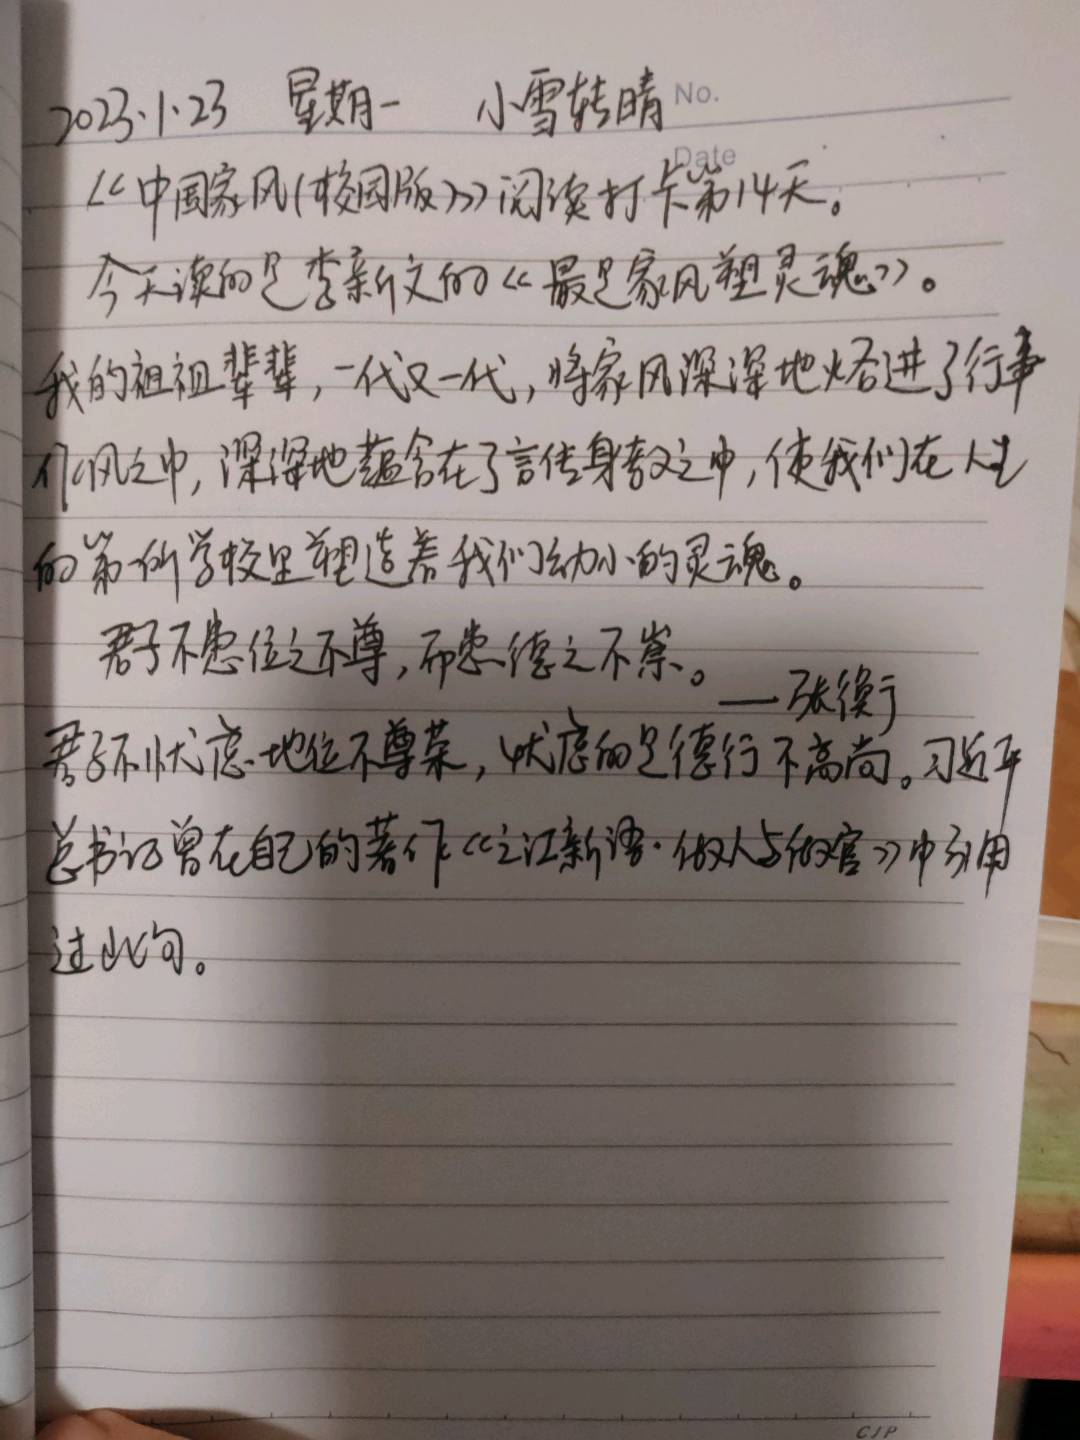 No.
Date
2023.1.23 星期一 小雪转晴
《中国家风(校园版)》阅读打卡第14天。
今天读的是李新文的《最是家风塑灵魂》。
我的祖祖辈辈,一代又一代,将家风深深地烙进了行事
作风之中,深深地蕴含在了言传身教之中,使我们在人生
的第一所学校里塑造着我们幼小的灵魂。
君子不患位之不尊,而患德之不崇。
——张衡
君子不忧虑地位不尊荣,忧虑的是德行不高尚。习近平
总书记曾在自己的著作《之江新语·做人与做官》中引用
过此句。
CJP